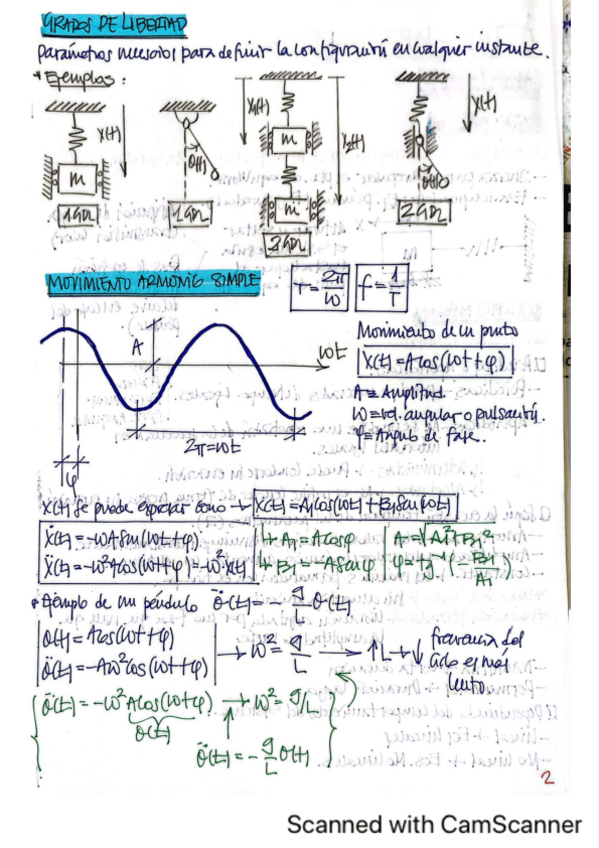 GRADOS DE LIBERTAD
Parámetros necesarios para definir la configuración en cualquier instante.
* Ejemplos:
x(t)
m
1 GDL
θ(t)
1 GDL
x₁(t)
m
x₂(t)
m
2 GDL
x(t)
θ(t)
2 GDL
MOVIMIENTO ARMÓNICO SIMPLE
T = 2π/ω
f = 1/T
A
ωt
2π=ωt
φ
Movimiento de un punto
x(t) = A cos(ωt + φ)
A ≡ Amplitud.
ω ≡ vel. angular o pulsación.
φ ≡ Ángulo de fase.
x(t) se puede expresar como → x(t) = A₁cos(ωt) + B₁sen(ωt)
ẋ(t) = -ωA sen(ωt + φ)
ẍ(t) = -ω²A cos(ωt + φ) = -ω²x(t)
↳ A₁ = A cosφ
↳ B₁ = -A senφ
A = √A₁² + B₁²
φ = tg⁻¹(-B₁/A₁)
* Ejemplo de un péndulo θ̈(t) = - g/L θ(t)
θ(t) = A cos(ωt + φ)
θ̈(t) = -Aω² cos(ωt + φ)
→ ω² = g/L → ↑L → ↓ frecuencia del
ciclo es más
lento
θ̈(t) = -ω² A cos(ωt + φ) → ω² = g/L
θ(t)
θ̈(t) = - g/L θ(t)
2
Scanned with CamScanner